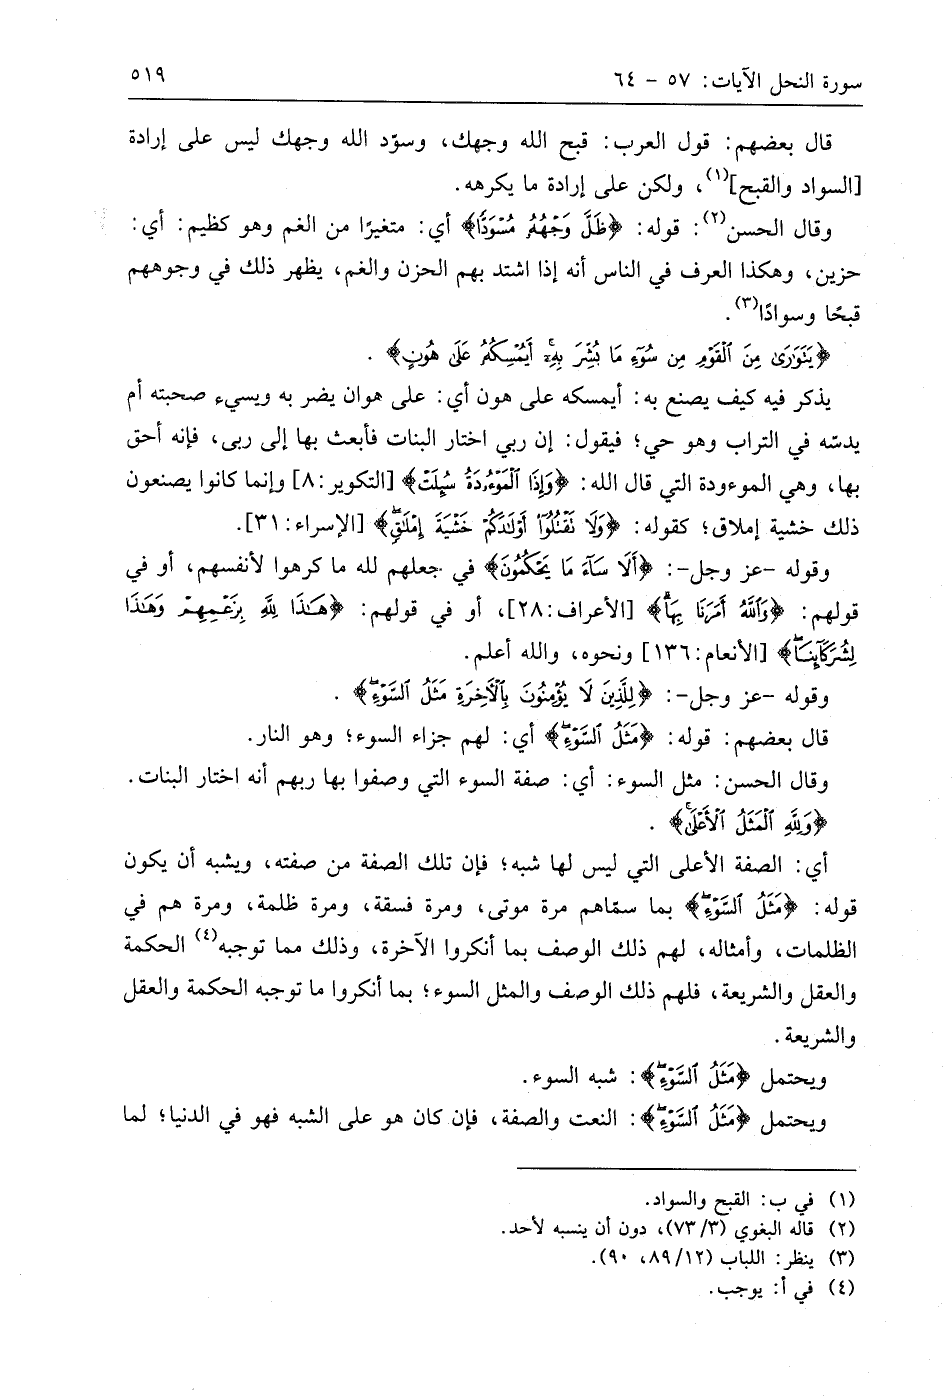 سورة النحل الآيات: ٥٧ - ٦٤
٥١٩
قال بعضهم: قول العرب: قبح الله وجهك، وسوّد الله وجهك ليس على إرادة
[السواد والقبح](١)، ولكن على إرادة ما يكرهه.
وقال الحسن(٢): قوله: ﴿ظَلَّ وَجْهُهُۥ مُسْوَدًّا﴾ أي: متغيرًا من الغم وهو كظيم: أي:
حزين، وهكذا العرف في الناس أنه إذا اشتد بهم الحزن والغم، يظهر ذلك في وجوههم
قبحًا وسوادًا(٣).
﴿يَتَوَٰرَىٰ مِنَ ٱلْقَوْمِ مِن سُوٓءِ مَا بُشِّرَ بِهِۦٓ ۚ أَيُمْسِكُهُۥ عَلَىٰ هُونٍ﴾ .
يذكر فيه كيف يصنع به: أيمسكه على هون أي: على هوان يضر به ويسيء صحبته أم
يدسّه في التراب وهو حي؛ فيقول: إن ربي اختار البنات فأبعث بها إلى ربى، فإنه أحق
بها، وهي الموءودة التي قال الله: ﴿وَإِذَا ٱلْمَوْءُۥدَةُ سُئِلَتْ﴾ [التكوير:٨] وإنما كانوا يصنعون
ذلك خشية إملاق؛ كقوله: ﴿وَلَا تَقْتُلُوٓا۟ أَوْلَٰدَكُمْ خَشْيَةَ إِمْلَٰقٍ ۖ﴾ [الإسراء:٣١].
وقوله -عز وجل-: ﴿أَلَا سَآءَ مَا يَحْكُمُونَ﴾ في جعلهم لله ما كرهوا لأنفسهم، أو في
قولهم: ﴿وَٱللَّهُ أَمَرَنَا بِهَا ۗ﴾ [الأعراف:٢٨]، أو في قولهم: ﴿هَٰذَا لِلَّهِ بِزَعْمِهِمْ وَهَٰذَا
لِشُرَكَآئِنَا ۖ﴾ [الأنعام:١٣٦] ونحوه، والله أعلم.
وقوله -عز وجل-: ﴿لِلَّذِينَ لَا يُؤْمِنُونَ بِٱلْءَاخِرَةِ مَثَلُ ٱلسَّوْءِ ۖ﴾ .
قال بعضهم: قوله: ﴿مَثَلُ ٱلسَّوْءِ ۖ﴾ أي: لهم جزاء السوء؛ وهو النار.
وقال الحسن: مثل السوء: أي: صفة السوء التي وصفوا بها ربهم أنه اختار البنات.
﴿وَلِلَّهِ ٱلْمَثَلُ ٱلْأَعْلَىٰ ۚ﴾ .
أي: الصفة الأعلى التي ليس لها شبه؛ فإن تلك الصفة من صفته، ويشبه أن يكون
قوله: ﴿مَثَلُ ٱلسَّوْءِ ۖ﴾ بما سمّاهم مرة موتى، ومرة فسقة، ومرة ظلمة، ومرة هم في
الظلمات، وأمثاله، لهم ذلك الوصف بما أنكروا الآخرة، وذلك مما توجبه(٤) الحكمة
والعقل والشريعة، فلهم ذلك الوصف والمثل السوء؛ بما أنكروا ما توجبه الحكمة والعقل
والشريعة.
ويحتمل ﴿مَثَلُ ٱلسَّوْءِ ۖ﴾: شبه السوء.
ويحتمل ﴿مَثَلُ ٱلسَّوْءِ ۖ﴾: النعت والصفة، فإن كان هو على الشبه فهو في الدنيا؛ لما
(١) في ب: القبح والسواد.
(٢) قاله البغوي (٧٣/٣)، دون أن ينسبه لأحد.
(٣) ينظر: اللباب (٨٩/١٢، ٩٠).
(٤) في أ: يوجب.